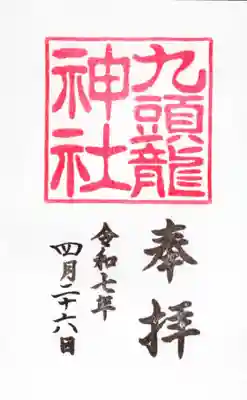 九頭龍
神社
奉拝
令和七年
四月二十六日